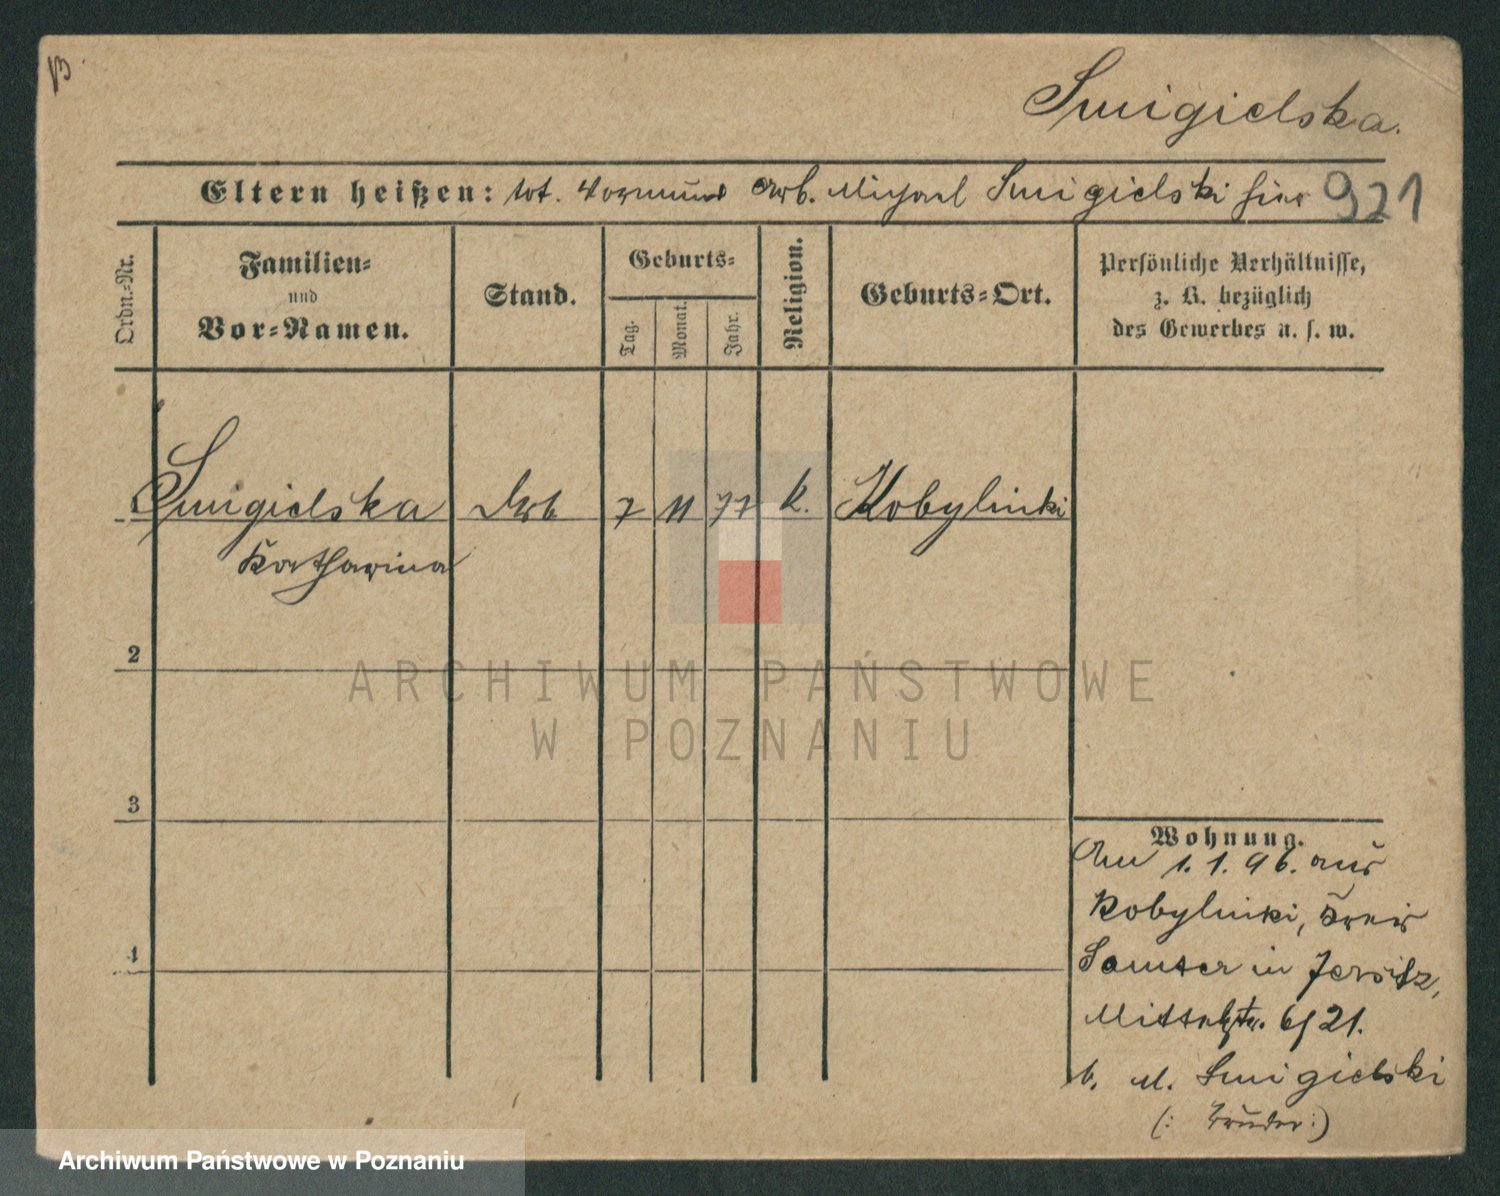 B.
Smigielska.
Eltern heißen: tot. Vormund Arb. Michael Smigielski hier 921
Ordn.-Nr.
Familien-
und
Vor-Namen.
Stand.
Geburts-
Tag.
Monat.
Jahr.
Religion.
Geburts-Ort.
Persönliche Verhältnisse,
z. B. bezüglich
des Gewerbes u. s. w.
Smigielska Arb 7 11 77 k. Kobylniki
Katharina
2
3
4
Wohnung.
Am 1.1.96. aus
Kobylniki, Kreis
Samter in Jersitz,
Mittelstr. 6/21.
b. M. Smigielski
(: Bruder :)
ARCHIWUM PAŃSTWOWE
W POZNANIU
Archiwum Państwowe w Poznaniu